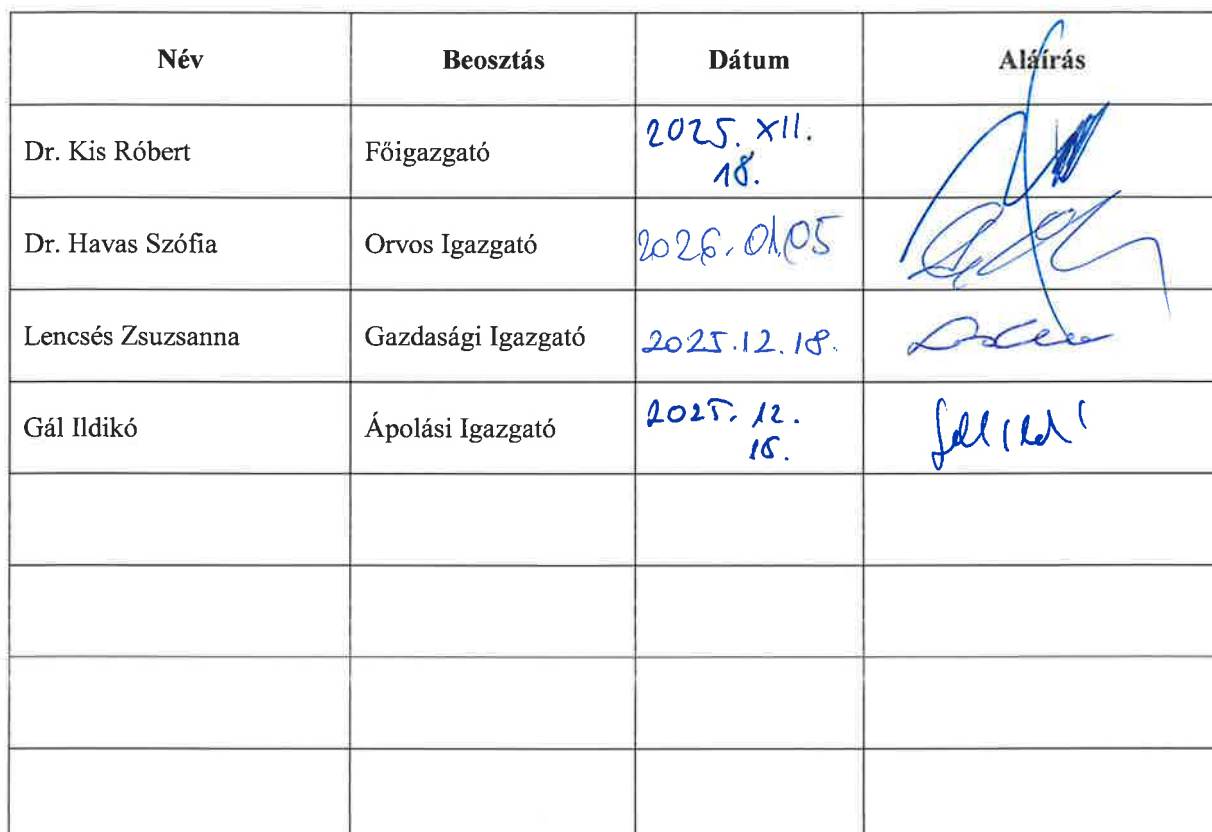 Név Beosztás Dátum Aláírás
Dr. Kis Róbert Főigazgató 2025. XII. 18.
Dr. Havas Szófia Orvos Igazgató 2026.01.05
Lencsés Zsuzsanna Gazdasági Igazgató 2025.12.18.
Gál Ildikó Ápolási Igazgató 2025. 12. 18.